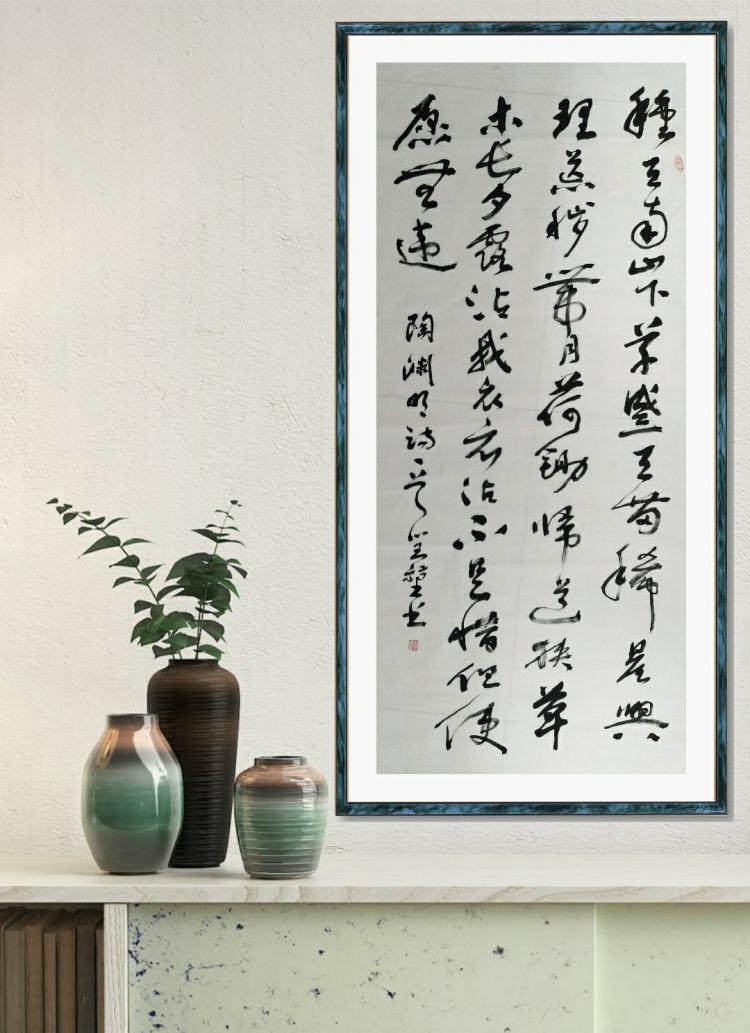 種豆南山下草盛豆苗稀晨興
理荒穢帶月荷鋤歸道狹草
木長夕露沾我衣衣沾不足惜但使
愿無違
陶渊明詩一首书